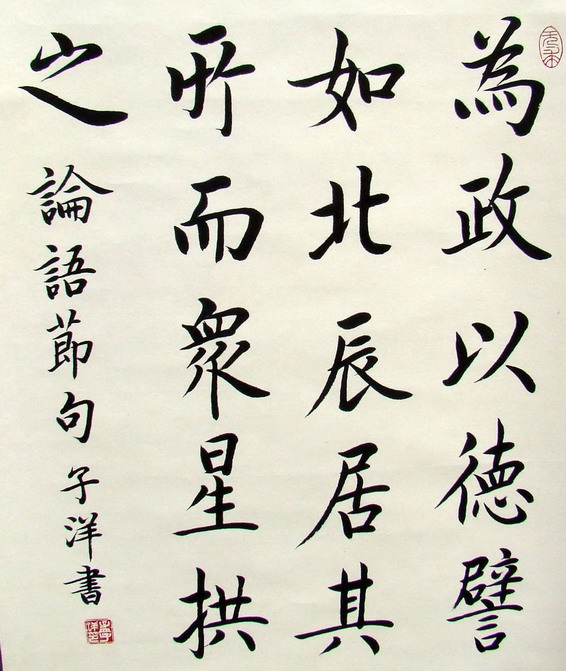 為政以德譬
如北辰居其
所而眾星拱
之
論語節句 子洋書